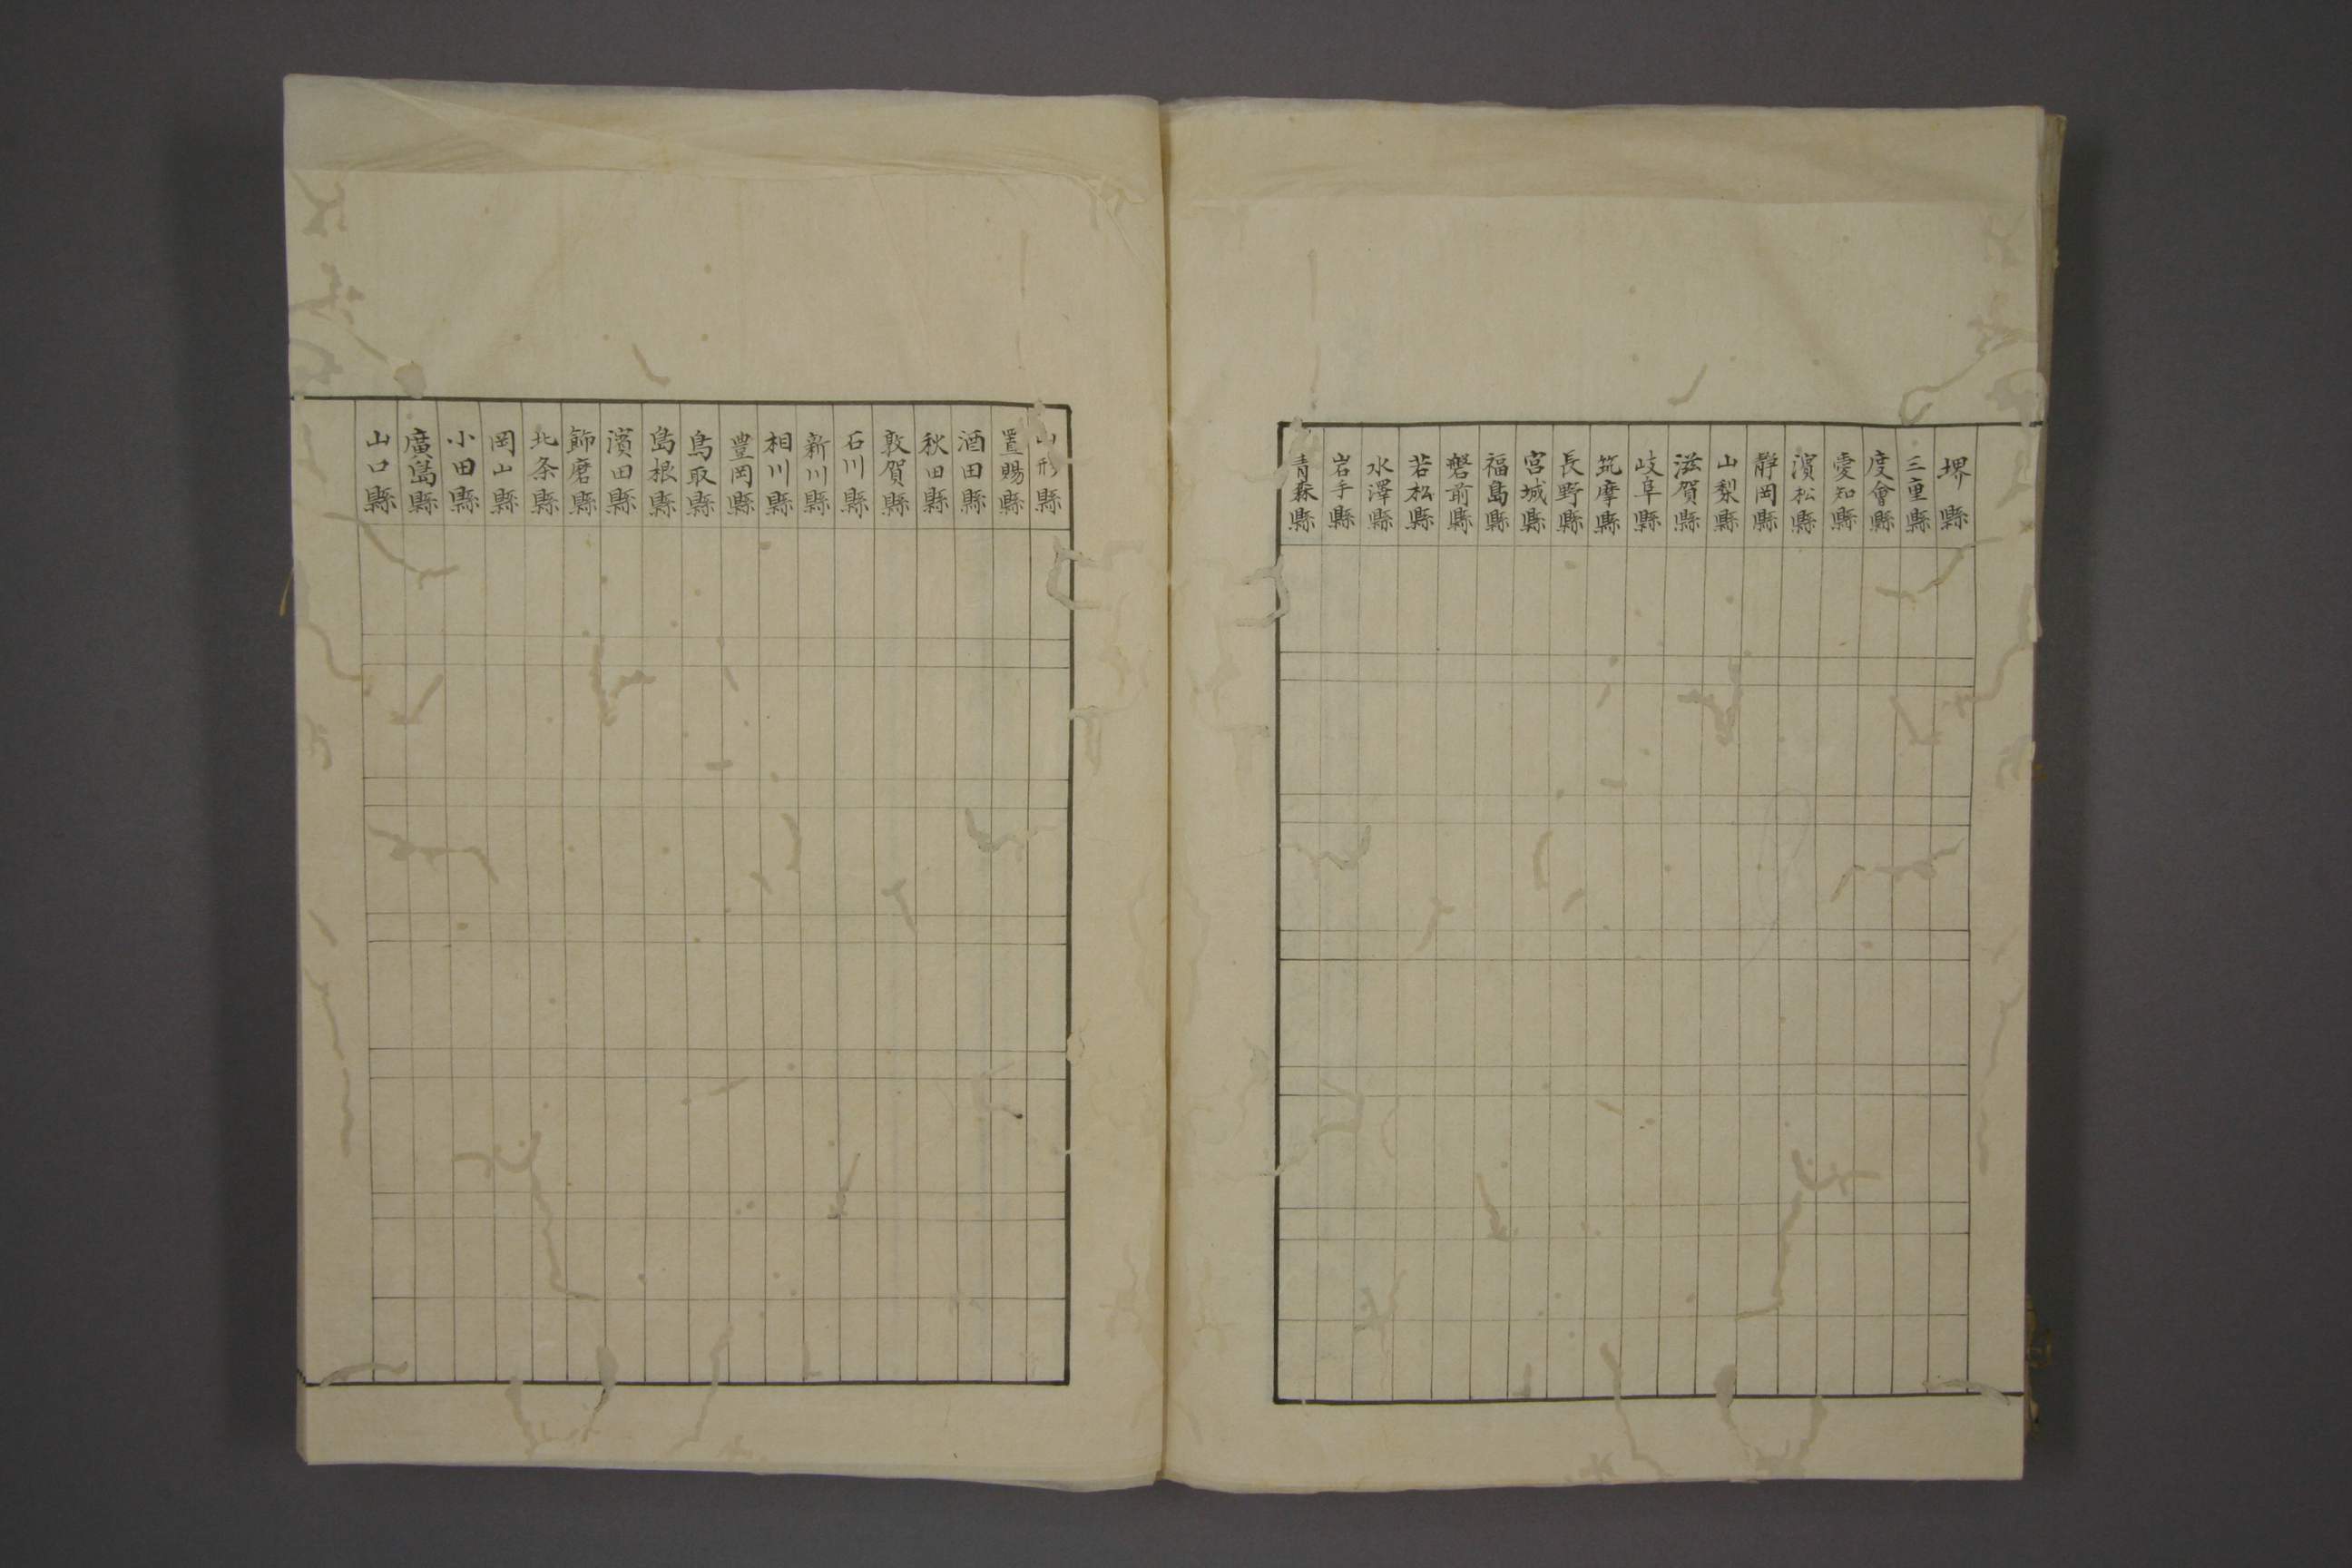 堺縣
三重縣
度會縣
愛知縣
濵松縣
静岡縣
山梨縣
滋賀縣
岐阜縣
筑摩縣
長野縣
宮城縣
福島縣
磐前縣
若松縣
水澤縣
岩手縣
青森縣
山形縣
置賜縣
酒田縣
秋田縣
敦賀縣
石川縣
新川縣
相川縣
豊岡縣
鳥取縣
島根縣
濵田縣
飾磨縣
北条縣
岡山縣
小田縣
廣島縣
山口縣